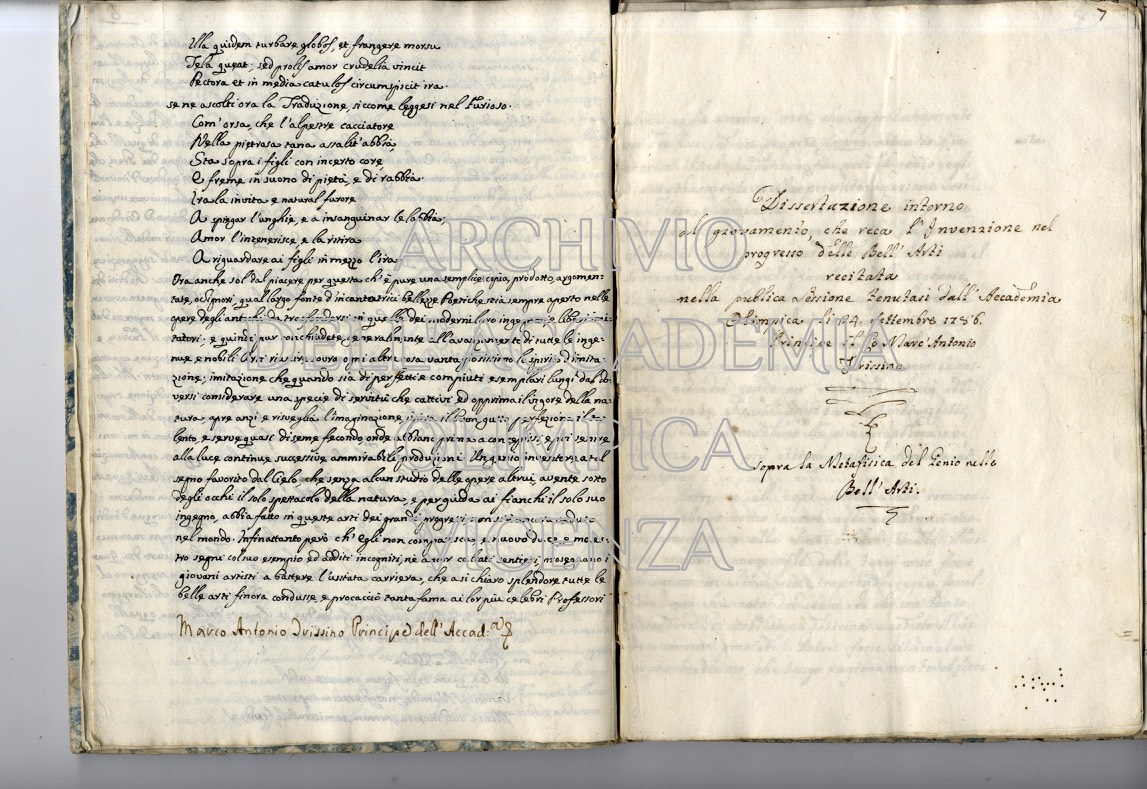 Illa quidem turbare globos, et frangere morsu
Tela queat; sed prolis amor crudelia vincit
Pectora et in media catulos circumspicit ira.
se ne ascolti ora la Traduzione, siccome leggesi nel Furioso.
Com' orsa, che l'alpestre cacciatore
Nella pietrosa tana assalit' abbia,
Sta sopra i figli con incerto core,
E freme in suono di pietà, e di rabbia.
Ira la invita e natural furore
A spiegar l'unghie, e a insanguinar le labbia,
Amor l'intenerisce, e la ritira
A riguardare ai figli in mezzo l'ira.
Ora anche sol dal piacere per questa ch' è pure una semplice copia, prodotto, argomen-
tate, o Signori, qual largo fonte d'incantatrici bellezze Poetiche stia sempre aperto nelle
opere degli antichi da trasfondersi in quelle dei moderni loro ingegnosi e liberi imi-
tatori; e quindi pur conchiudete generalmente all'avanzamento di tutte le inge-
nue, e nobili Arti
zione; imitazione che quando sia di perfetti e compiuti esemplari lungi dal do-
versi considerare una specie di servitù che cattivi ed opprima il vigore della na-
tura, apre anzi e risveglia l'imaginazione,
lento, e serve quasi di seme fecondo, onde
alla luce continue successive ammirabili produzioni. Un genio inventore a tal
segno favorito dal Cielo, che senza alcun studio delle opere altrui, avente sotto
degli occhi il solo spettacolo della natura, e per guida ai fianchi il solo suo
ingegno, abbia fatto in queste arti dei grandi progressi non si è ancora veduto
nel mondo. Infinattanto però ch' egli non comparisca, e nuovo duce e maes-
tro segni col suo esempio ed additi incogniti, nè ancor calcati sentieri, proseguano i
giovani artisti a battere l'usitata carriera, che a sì chiaro splendore tutte le
belle arti finora condusse, e procacciò tanta fama ai lor più celebri Professori
Marco Antonio Trissino Principe dell' Accad:a
7
Dissertazione intorno
al giovamento, che reca l'Invenzione nel
progresso delle Bell' Arti
recitata
nella publica Sessione tenutasi dall' Accademia
Olimpica li 24. settembre 1786.
Principe il Co: Marc' Antonio
Trissino
sopra la Metafisica del Genio nelle
Bell' Arti.
ARCHIVIO
DELL'ACCADEMIA
OLIMPICA
VICENZA